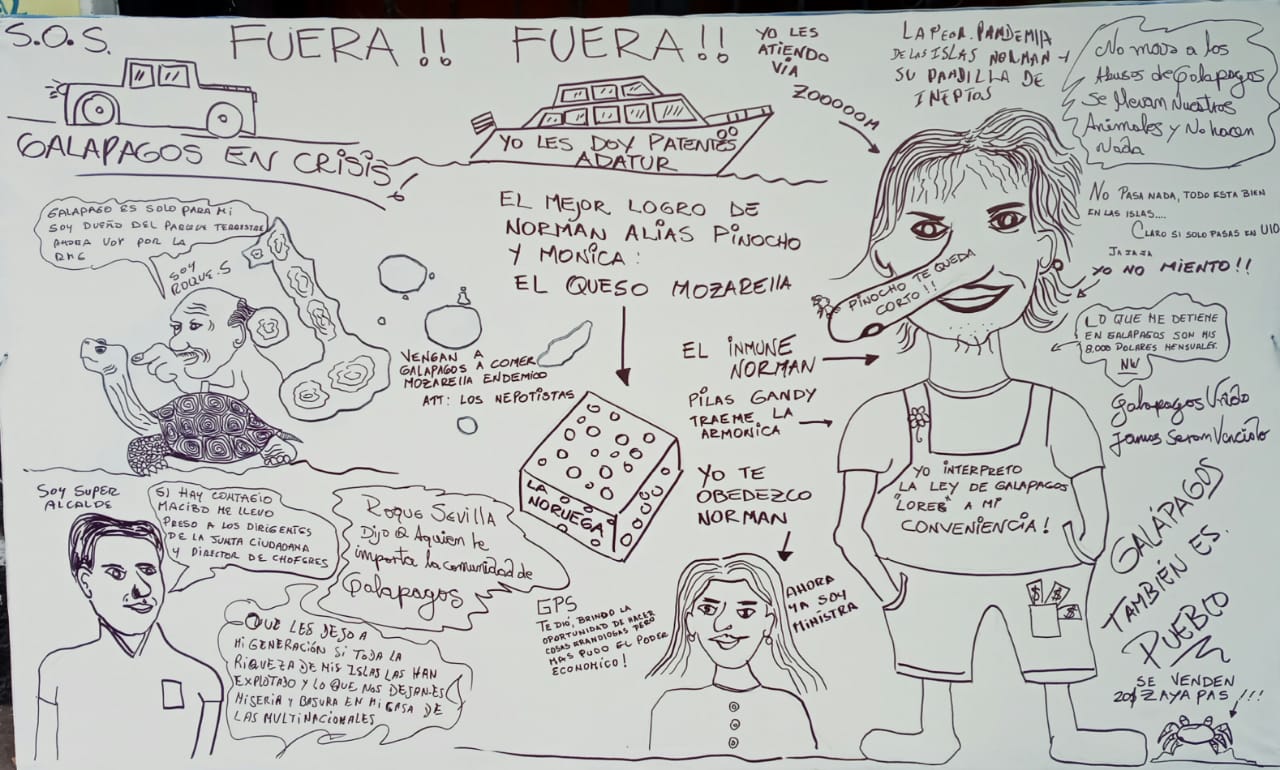 S.O.S.
FUERA!! FUERA!!
GALAPAGOS EN CRISIS!
YO LES DOY PATENTES
ADATUR
YO LES
ATIENDO
VIA
ZOOOOOM
LA PEOR PANDEMIA
DE LAS ISLAS NORMAN Y
SU PANDILLA DE
INEPTOS
No mas a los
Abusos de Galapagos
Se llevan Nuestros
Animales y No hacen
Nada
GALAPAGO ES SOLO PARA MI
SOY DUEÑO DEL PARQUE TERRESTRE
AHORA VOY POR LA
RMG
SOY
ROQUE.S
EL MEJOR LOGRO DE
NORMAN ALIAS PINOCHO
Y MONICA:
EL QUESO MOZARELLA
VENGAN A
GALAPAGOS A COMER
MOZARELLA ENDEMICO
ATT: LOS NEPOTISTAS
LA
NORUEGA
PINOCHO TE QUEDA
CORTO!!
NO PASA NADA, TODO ESTA BIEN
EN LAS ISLAS....
CLARO SI SOLO PASAS EN UIO
JAJAJA
YO NO MIENTO!!
LO QUE ME DETIENE
EN GALAPAGOS SON MIS
8.000 DOLARES MENSUALES.
NW
EL INMUNE
NORMAN
PILAS GANDY
TRAEME LA
ARMONICA
YO TE
OBEDEZCO
NORMAN
YO INTERPRETO
LA LEY DE GALAPAGOS
"LOREG" A MI
CONVENIENCIA!
Galapagos Unido
Jamas Seram Vencido
GALÁPAGOS
TAMBIÉN ES.
PUEBLO
SE VENDEN
20$ ZAYAPAS !!!
SOY SUPER
ALCALDE
SI HAY CONTAGIO
MACIBO ME LLEVO
PRESO A LOS DIRIGENTES
DE LA JUNTA CIUDADANA
Y DIRECTOR DE CHOFERES
Roque Sevilla
Dijo a Aquien le
importa la comunidad de
Galapagos
QUE LES DEJO A
MI GENERACIÓN SI TODA LA
RIQUEZA DE MIS ISLAS LAS HAN
EXPLOTADO Y LO QUE NOS DEJAN ES
MISERIA Y BASURA EN MI CASA DE
LAS MULTINACIONALES
GPS
TE DIÓ, BRINDO LA
OPORTUNIDAD DE HACER
COSAS GRANDIOSAS PERO
MAS PUDO EL PODER
ECONOMICO!
AHORA
YA SOY
MINISTRA
$
$
$